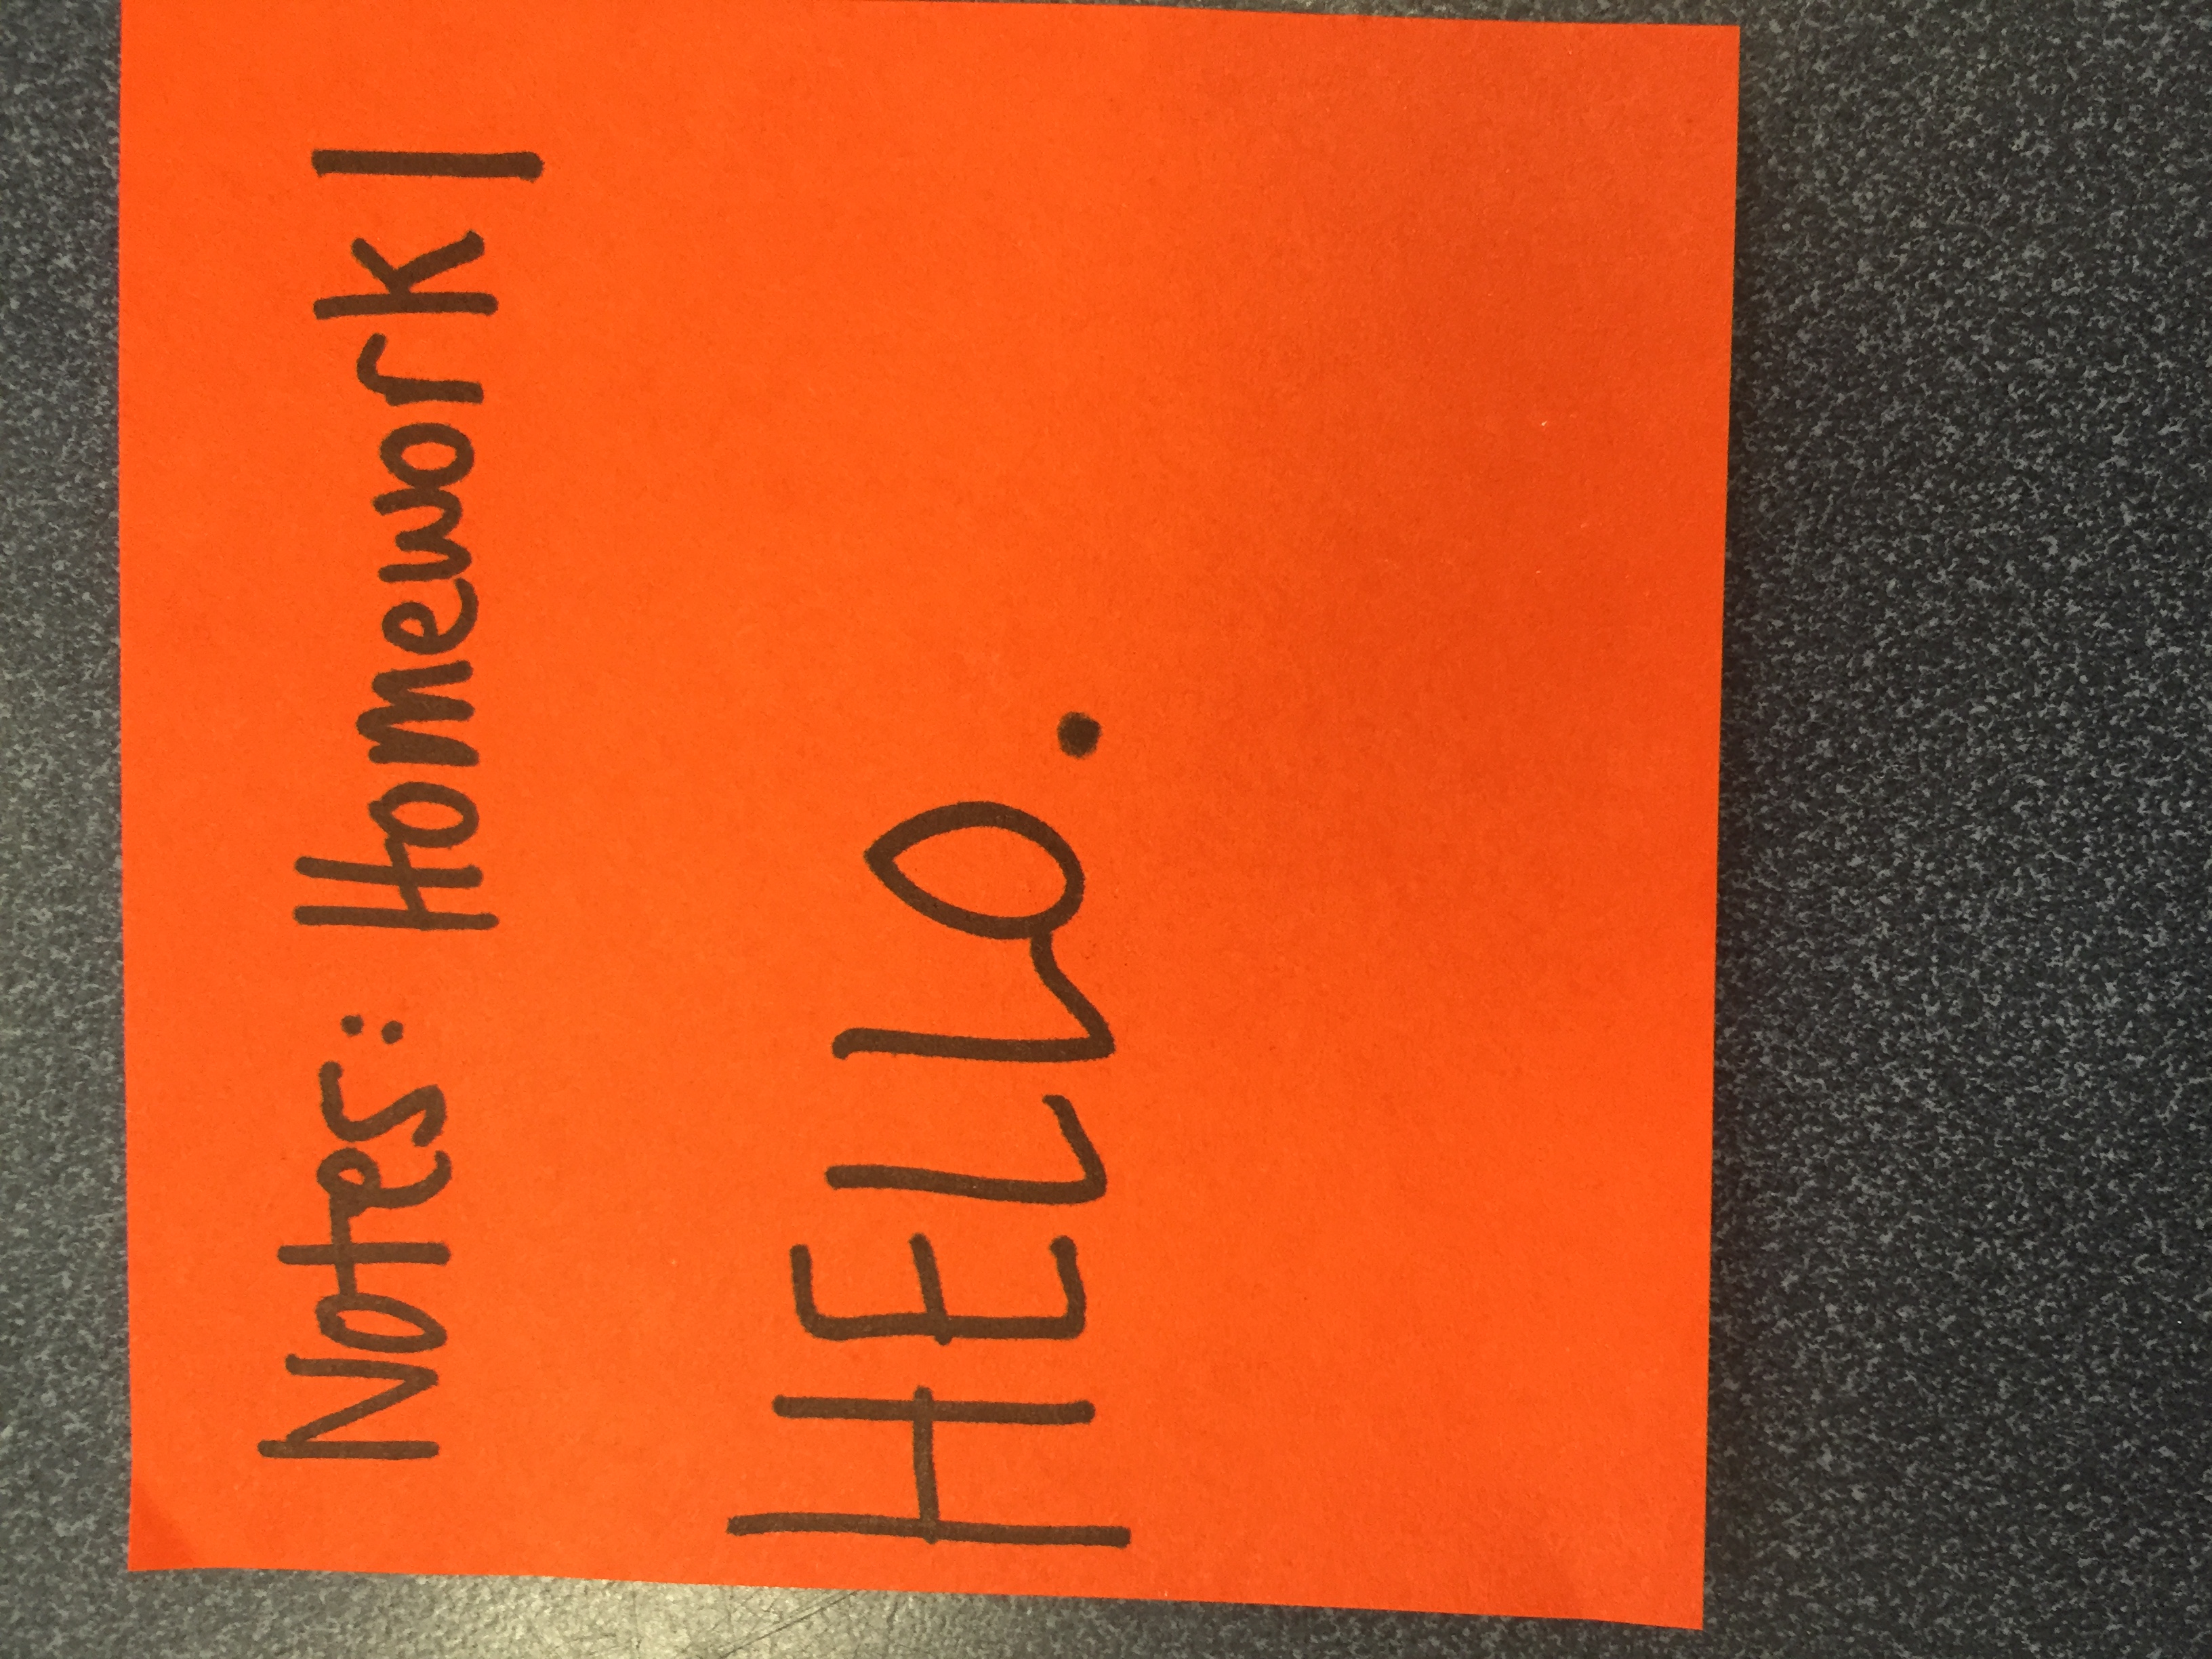 Notes: Homework 1
HELLO.